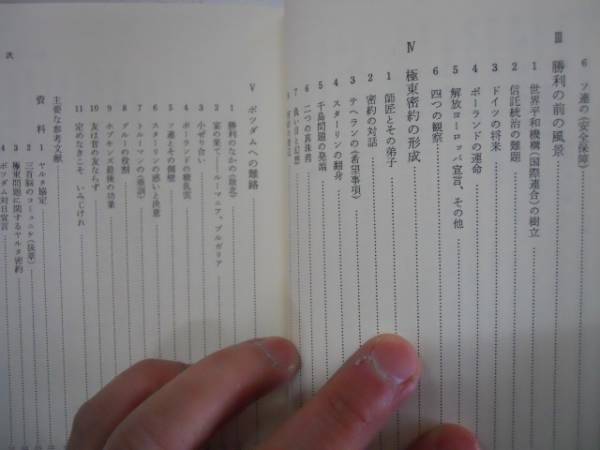 6 ソ連の〈安全保障〉
Ⅲ 勝利の前の風景
1 世界平和機構(国際連合)の樹立
2 信託統治の難題
3 ドイツの将来
4 ポーランドの運命
5 解放ヨーロッパ宣言、その他
6 四つの観察
Ⅳ 極東密約の形成
1 師匠とその弟子
2 密約の対話
3 テヘランの〈希望事項〉
4 スターリンの翻身
5 千島問題の発端
6 二つの真珠湾
7
8
次
Ⅴ ポツダムへの難路
1 勝利のなかの〈敵意〉
2 宴の果て―ルーマニア、ブルガリア
3 小ぜり合い
4 ポーランドの離乳雲
5 ソ連とその側壁
6 スターリンの疑いと決意
7 トルーマンの〈強調〉
8 グルーの役割
9 ホプキンズ最後の効果
10 友は昔の友ならず
11 定めなきこそ いみじけれ
主要な参考文献
資料
1 ヤルタ協定
2 三首脳のコミュニケ(抜萃)
3 極東問題に関するヤルタ密約
4 ポツダム対日宣言